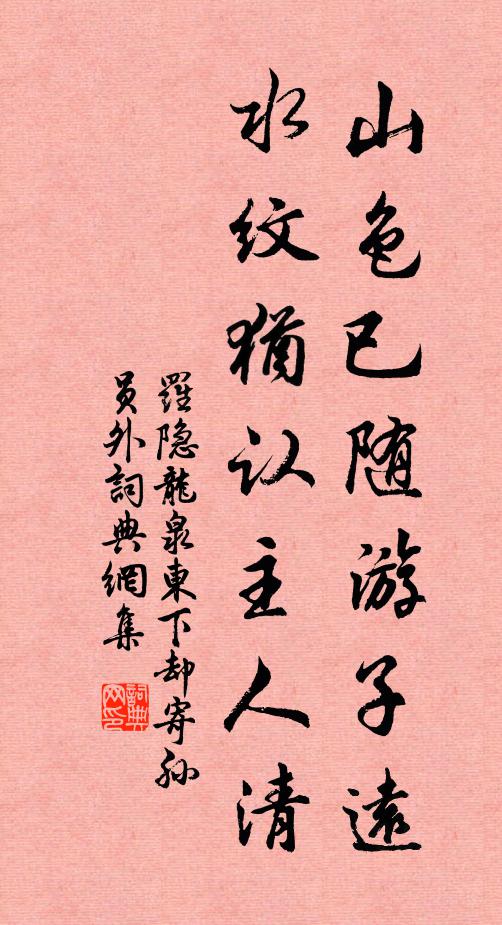 山色已随游子遠
水纹猶认主人清
羅隐龍泉東下却寄孙
員外詞典網集
詞典网印